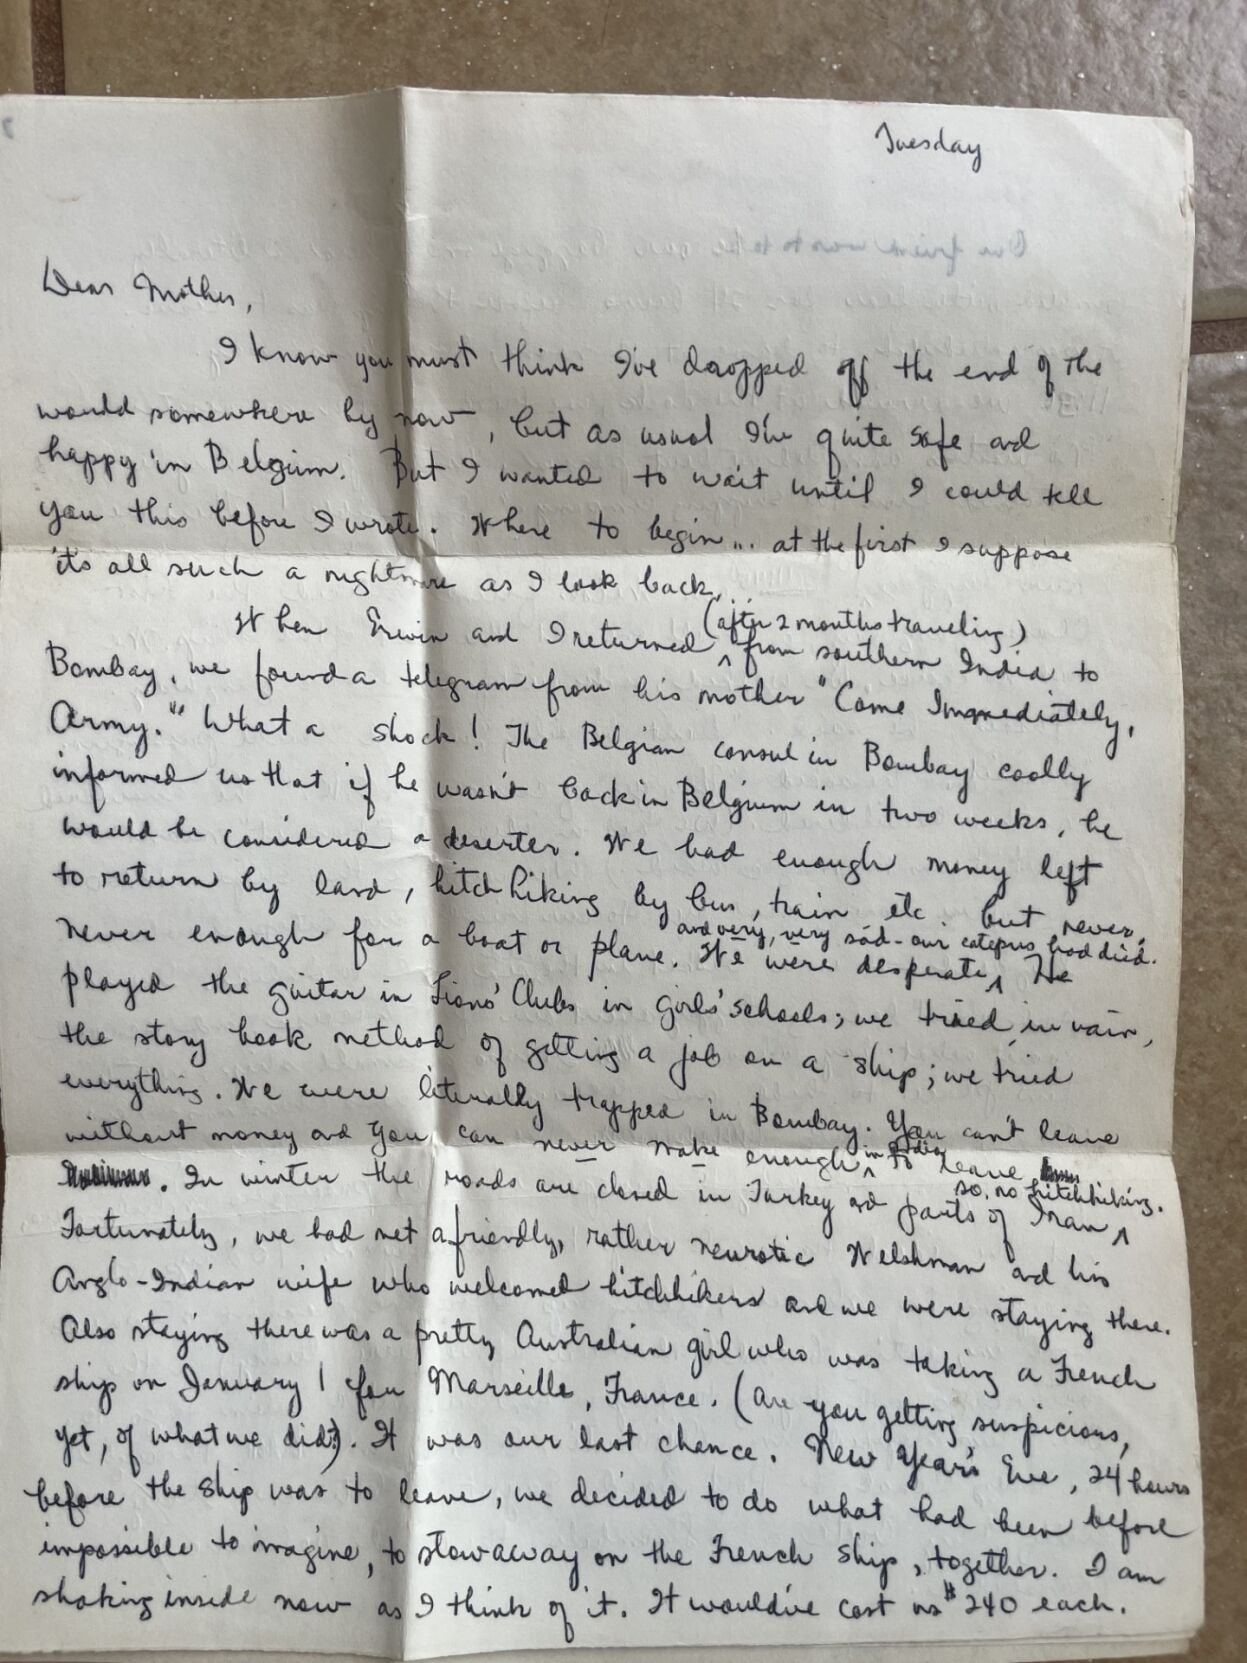 Tuesday
Dear Mother,
I know you must think I've dropped off the end of the
would somewhere by now, but as usual I'm quite safe and
happy in Belgium. But I wanted to wait until I could tell
you this before I wrote. Where to begin... at the first I suppose
it's all such a nightmare as I look back...
When Erwin and I returned (after 2 months traveling) from southern India to
Bombay, we found a telegram from his mother "Come Immediately,
Army." What a shock! The Belgian consul in Bombay coolly
informed us that if he wasn't back in Belgium in two weeks, he
would be considered a deserter. We had enough money left
to return by land, hitchhiking by bus, train etc. but never,
never enough for a boat or plane. We were desperate and very, very sad - our catepus had died. He
played the guitar in Lions' Clubs in girls' schools; we tried, in vain,
the story book method of getting a job on a ship; we tried
everything. We were literally trapped in Bombay. You can't leave
without money and you can never make enough in India to leave
. In winter the roads are closed in Turkey and parts of Iran so, no hitchhiking.
Fortunately, we had met a friendly, rather neurotic Welshman and his
Anglo-Indian wife who welcomed hitchhikers and we were staying there.
Also staying there was a pretty Australian girl who was taking a French
ship on January 1 for Marseille, France. (Are you getting suspicious,
yet, of what we did?). It was our last chance. New Year's Eve, 24 hours
before the ship was to leave, we decided to do what had been before
impossible to imagine, to stowaway on the French ship, together. I am
shaking inside now as I think of it. It would've cost us $240 each.